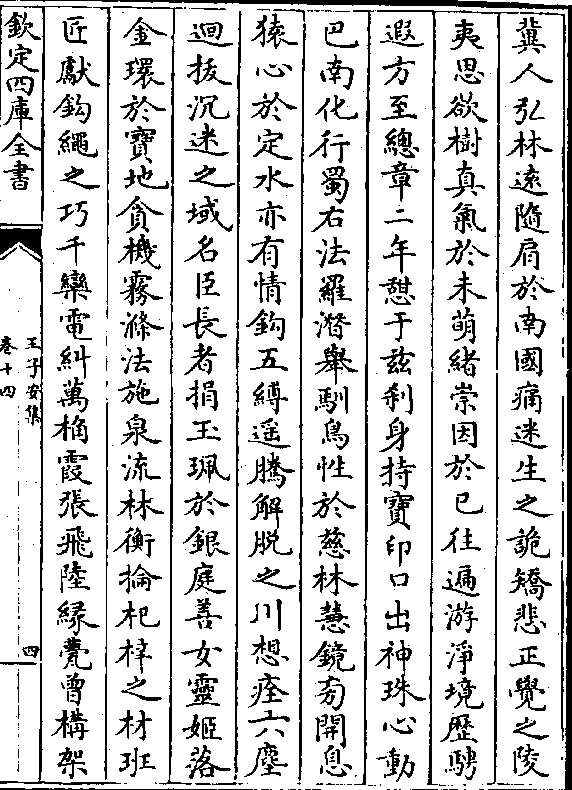 冀人弘林遠隨肩於南國痛迷生之詭矯悲正覺之陵
夷思欲樹真氣於未萌緒崇因於已往遍游淨境歴騁
遐方至總章二年憇于兹刹身持寶印口出神珠心動
巴南化行蜀右法羅潛舉馴鳥性於慈林慧鏡旁開息
猿心於定水亦有情鈎五縛遥騰解脱之川想痊六塵
迴拔沉迷之域名臣長者捐玉珮於銀庭善女靈姬落
金環於寶地貪機霧滌法施泉流林衡掄杞梓之材班
匠獻鈎繩之巧千欒電糾萬桷霞張飛陸緣甍曾構架
欽定四庫全書
王子安集
卷十四
四